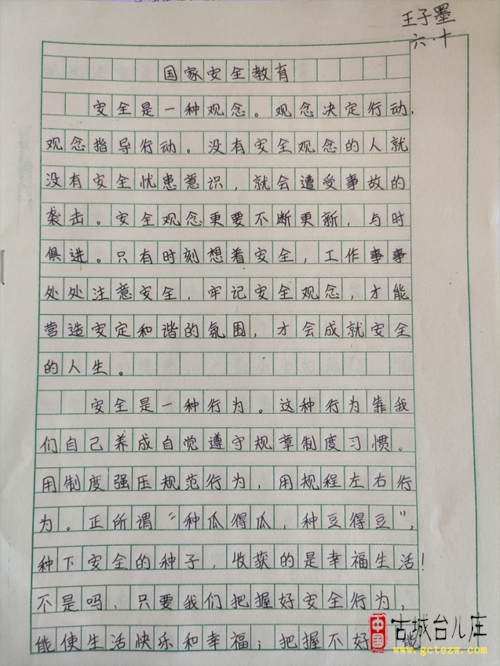 王子墨
六.十
国家安全教育
安全是一种观念。观念决定行动,
观念指导行动。没有安全观念的人就
没有安全忧患意识,就会遭受事故的
袭击。安全观念更要不断更新,与时
俱进。只有时刻想着安全,工作事事
处处注意安全,牢记安全观念,才能
营造安定和谐的氛围,才会成就安全
的人生。
安全是一种行为。这种行为靠我
们自己养成自觉遵守规章制度习惯。
用制度强压规范行为,用规程左右行
为。正所谓“种瓜得瓜,种豆得豆”,
种下安全的种子,收获的是幸福生活!
不是吗,只要我们把握好安全行为,
能使生活快乐和幸福;把握不好
中国 古城台儿庄
www.gctezw.com